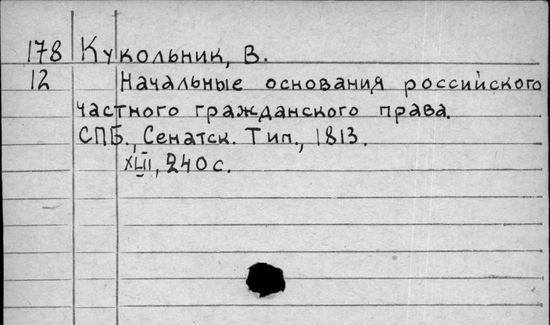 178 Кукольник, В.
12 Начальные основания российского
частного гражданского права.
СПБ., Сенатск. Тип., 1813.
XLII, 240 с.